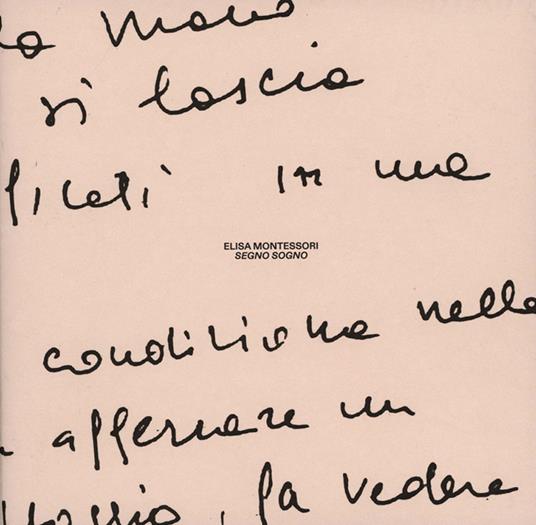 la mano
si lascia
in una
ELISA MONTESSORI
SEGNO SOGNO
condiziona nella
afferrare un
, fa vedere